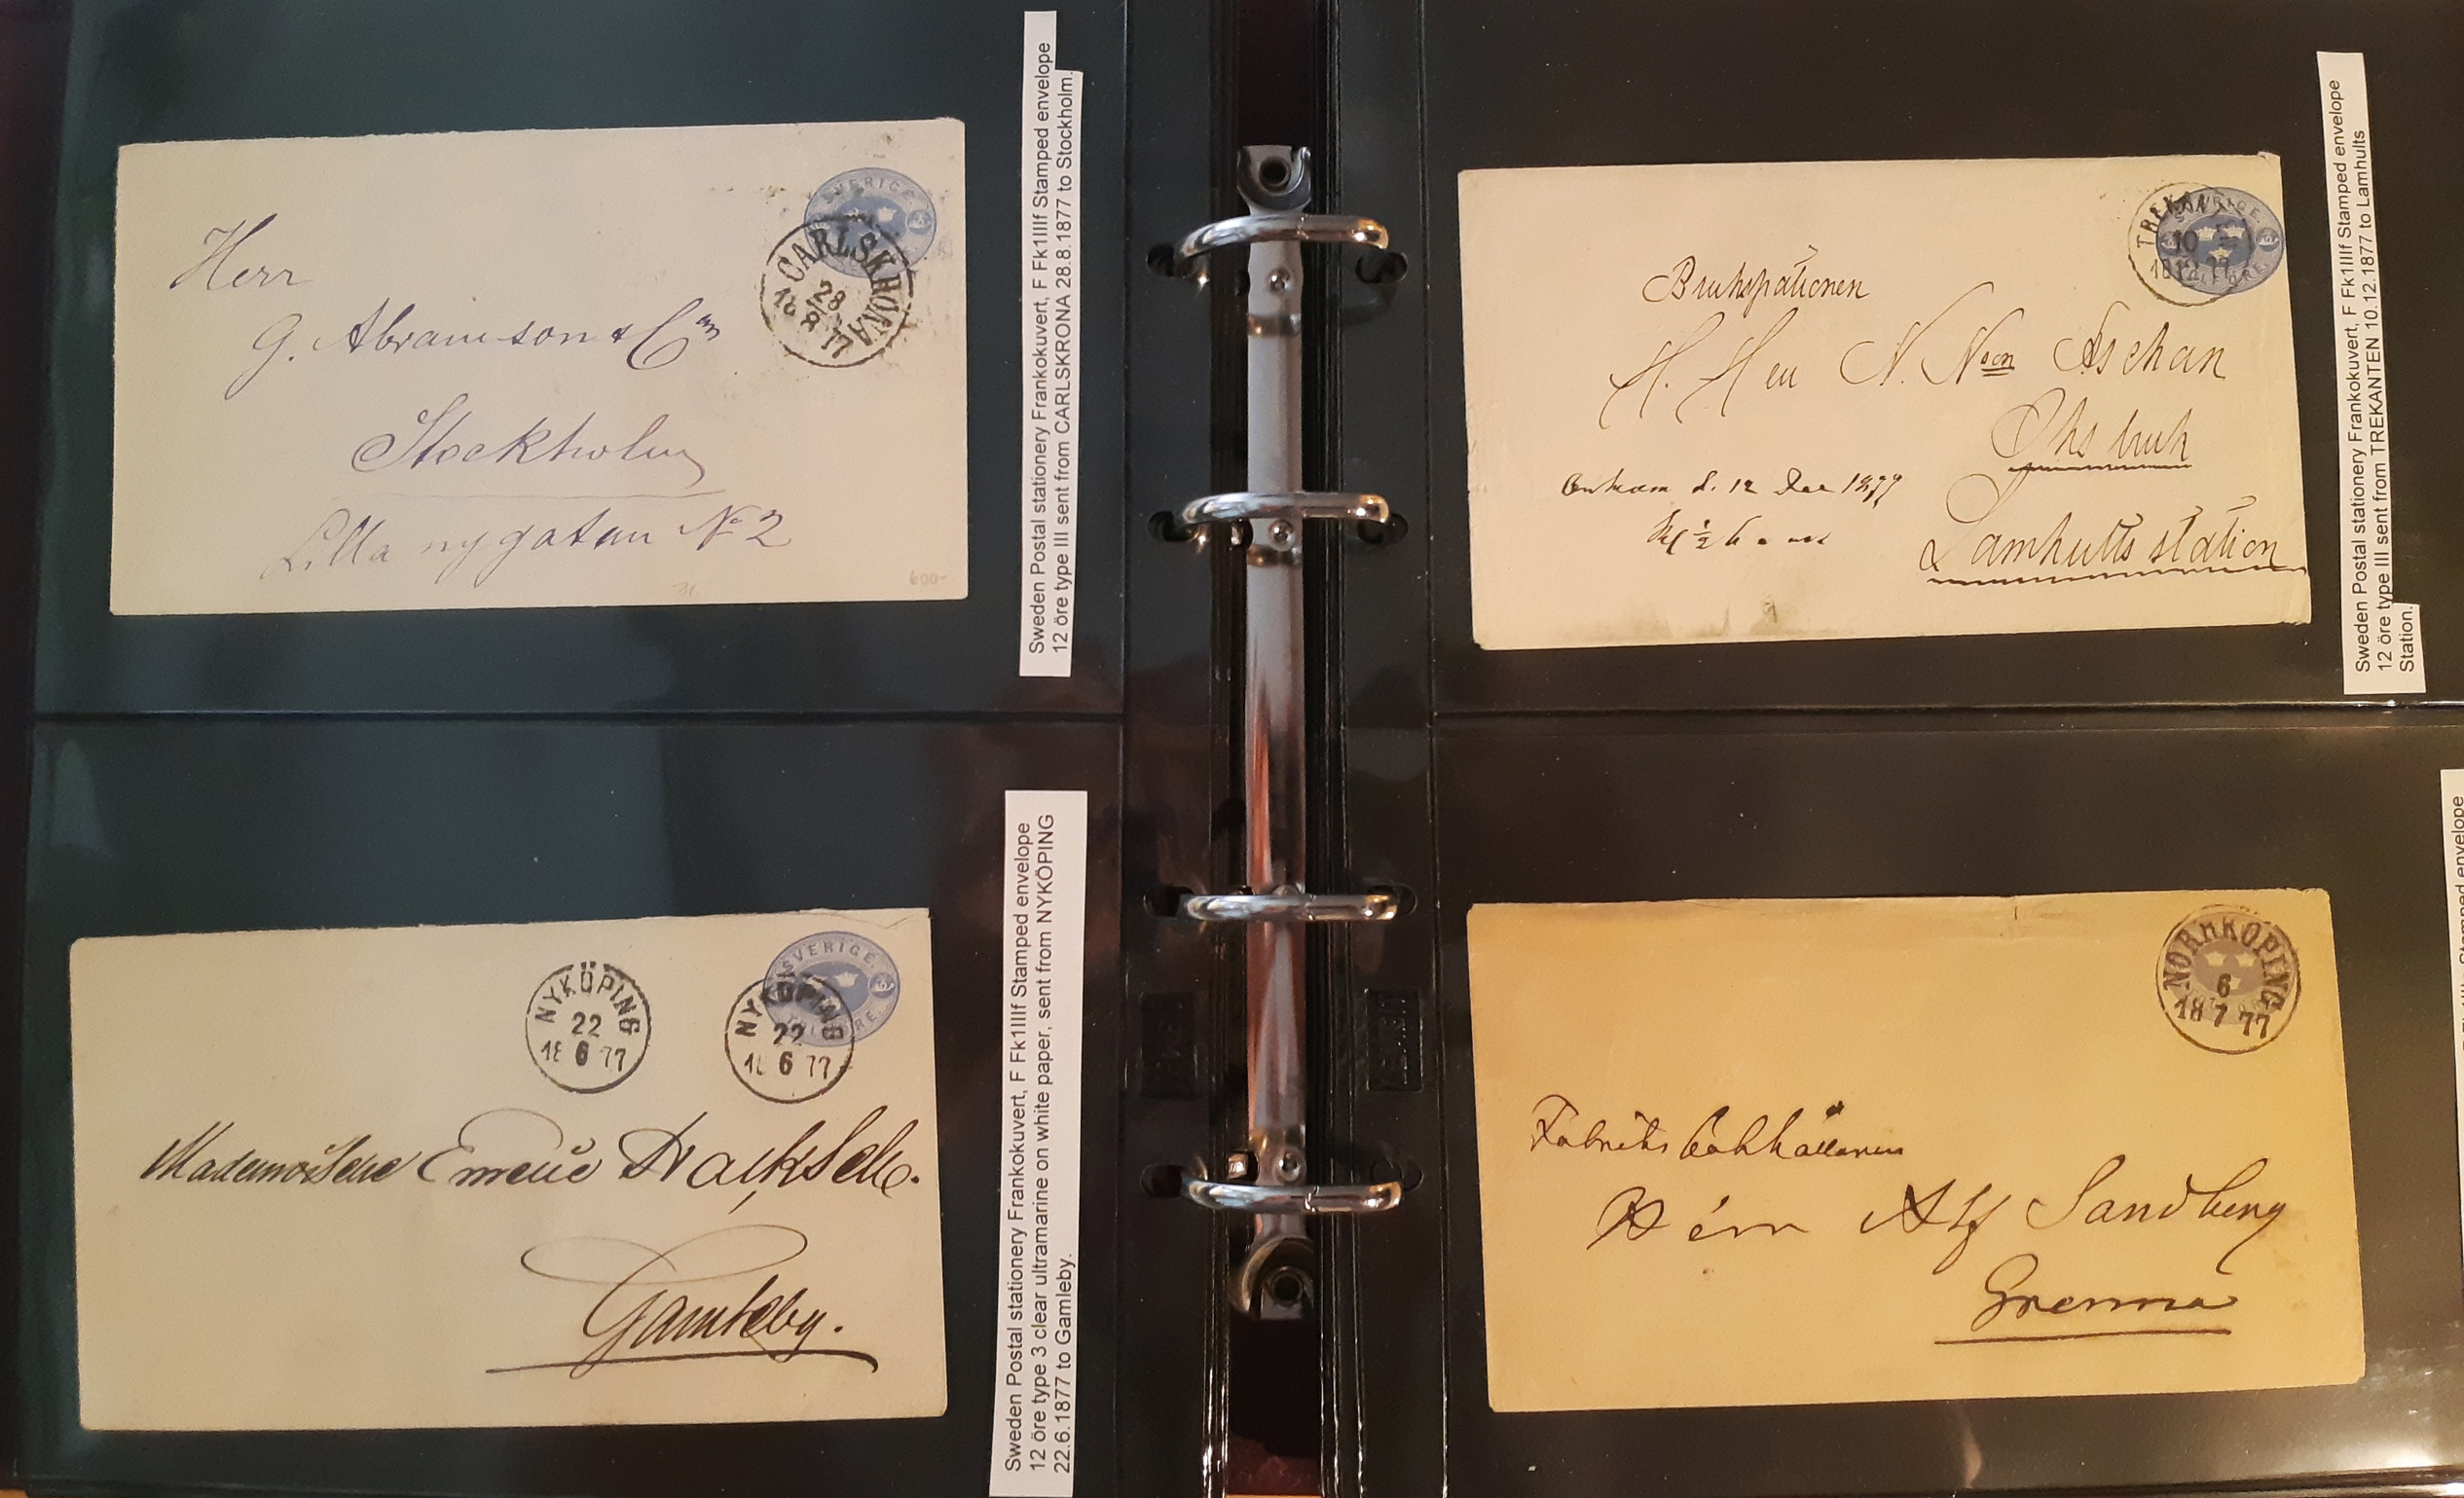 SVERIGE
CARLSKRONA
28
18 8 77
Herr
G. Abramson & Co
Stockholm
Lilla nygatan No 2
600-
Sweden Postal stationery Frankokuvert, F Fk1IIIf Stamped envelope
12 öre type III sent from CARLSKRONA 28.8.1877 to Stockholm.
SVERIGE.
NYKÖPING
22
18 6 77
NYKÖPING
22
18 6 77
Mademoiselle
Gamleby.
Sweden Postal stationery Frankokuvert, F Fk1IIIf Stamped envelope
12 öre type 3 clear ultramarine on white paper, sent from NYKÖPING
22.6.1877 to Gamleby.
TREKANTEN
10
18 12 77
Brukspationen
H. Herr N. Nson Aschan
Ohs bruk
Lamhults station
Ankom d. 12 Dec 1877
Sweden Postal stationery Frankokuvert, F Fk1IIIf Stamped envelope
12 öre type III sent from TREKANTEN 10.12.1877 to Lamhults
Station.
NORRKÖPING
6
18 7 77
Fabriks bokhållaren
Herrn Alf Sandberg
Grenna
Stamped envelope